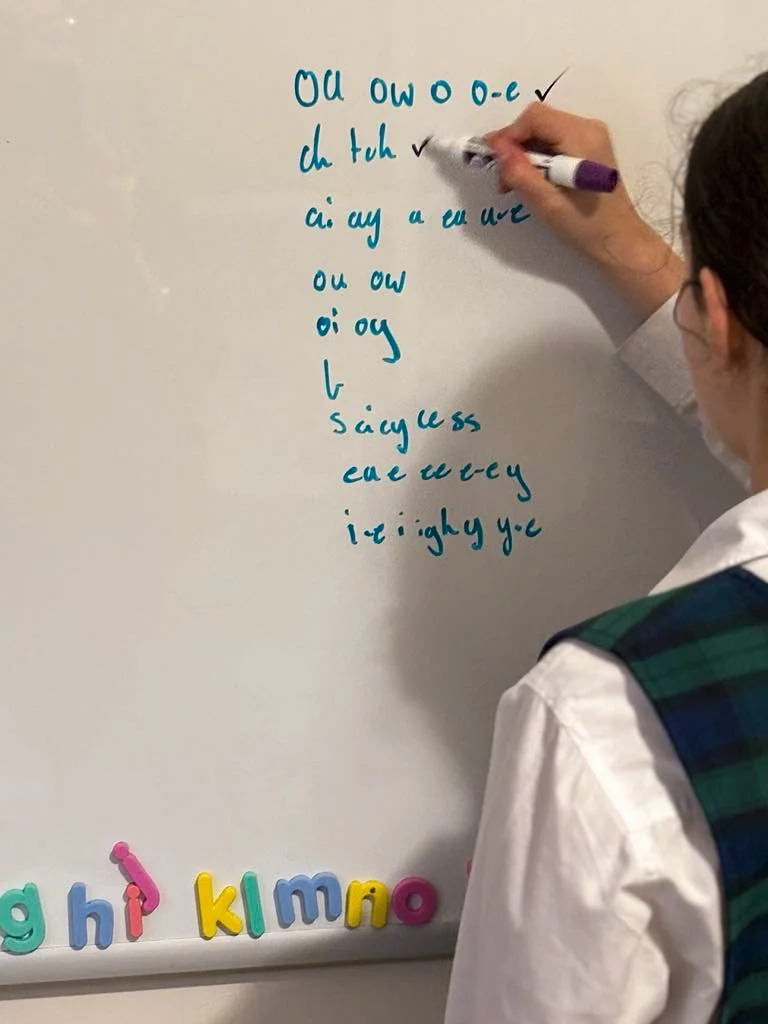 oa ow o o-e ✓
ch tch ✓
ai ay a ea a-e
ou ow
oi oy
b
s ci cy ce ss
ea e ee e-e y
i-e i igh y y-e
g h i j k l m n o